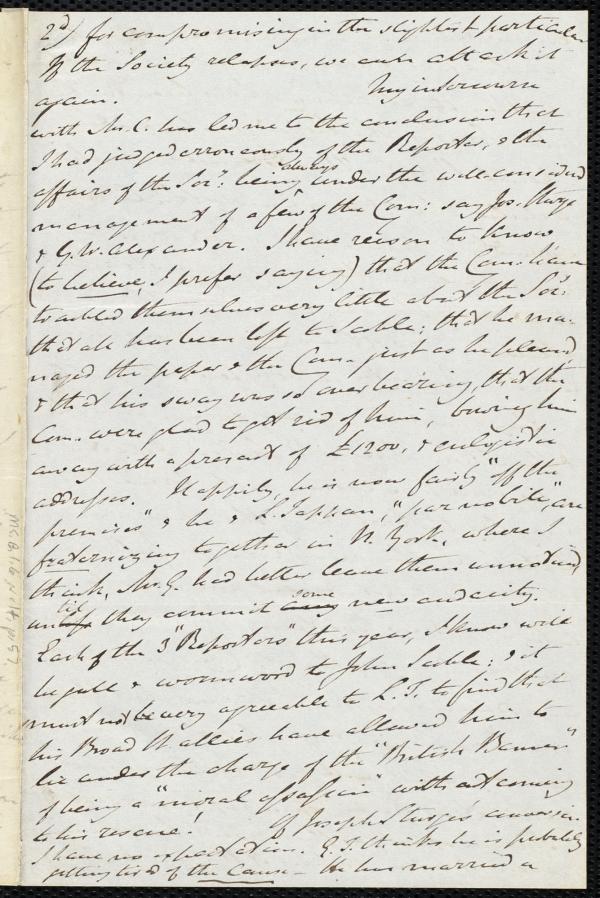 2d/ for compromising in the slightest particular
If the Society relapses, we can attack it
again. My intercourse
with Mr. C. has led me to the conclusion that
I had judged erroneously of the Reporter, & the
affairs of the Socy: being always under the well-considered
management of a few of the Com: say Jos. Sturge
& G. W. Alexander. I have reason to know
(to believe, I prefer saying) that the Com. have
troubled themselves very little about the Soc:
that all has been left to Scoble; that he ma-
naged the paper & the Com. just as he pleased
& that his sway was so overbearing, that the
Com. were glad to get rid of him, buying him
away with a present of £1200, & eulogistic
addresses. Happily, he is now fairly "off the
premises" & he & L. Tappan, "par nobile", are
fraternizing together in N. York, where I
think, Mr. G. had better leave them unnoticed
until they commit some new audacity.
Each of the 3 "Reporters" this year, I know will
be gall & wormwood to John Scoble; & it
must not be very agreeable to L. T. to find that
his Broad St allies have allowed him to
lie under the charge of the "British Banner"
of being a "moral assassin" without coming
to his rescue! Of Joseph Sturge's conversion
I have no expectation. G. T. thinks he is probably
getting tired of the Cause – He has married a
MS.B.1.6 v.4 p.57